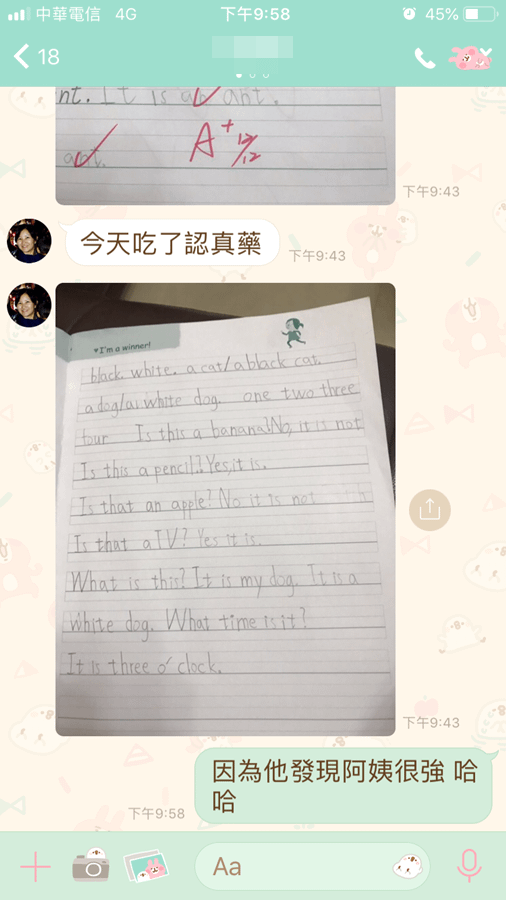 中華電信 4G 下午9:58 45%
18
nt. It is an ant.
ant. A+ 12/12
下午9:43
今天吃了認真藥
下午9:43
♥I'm a winner!
black. white. a cat/a black cat.
a dog/a white dog. one two three
four Is this a banana?No, it is not
Is this a pencil? Yes,it is.
Is that an apple? No it is not
Is that a TV? Yes it is.
What is this? It is my dog. It is a
white dog. What time is it?
It is three o'clock.
下午9:43
因為他發現阿姨很強 哈
哈
下午9:58
Aa